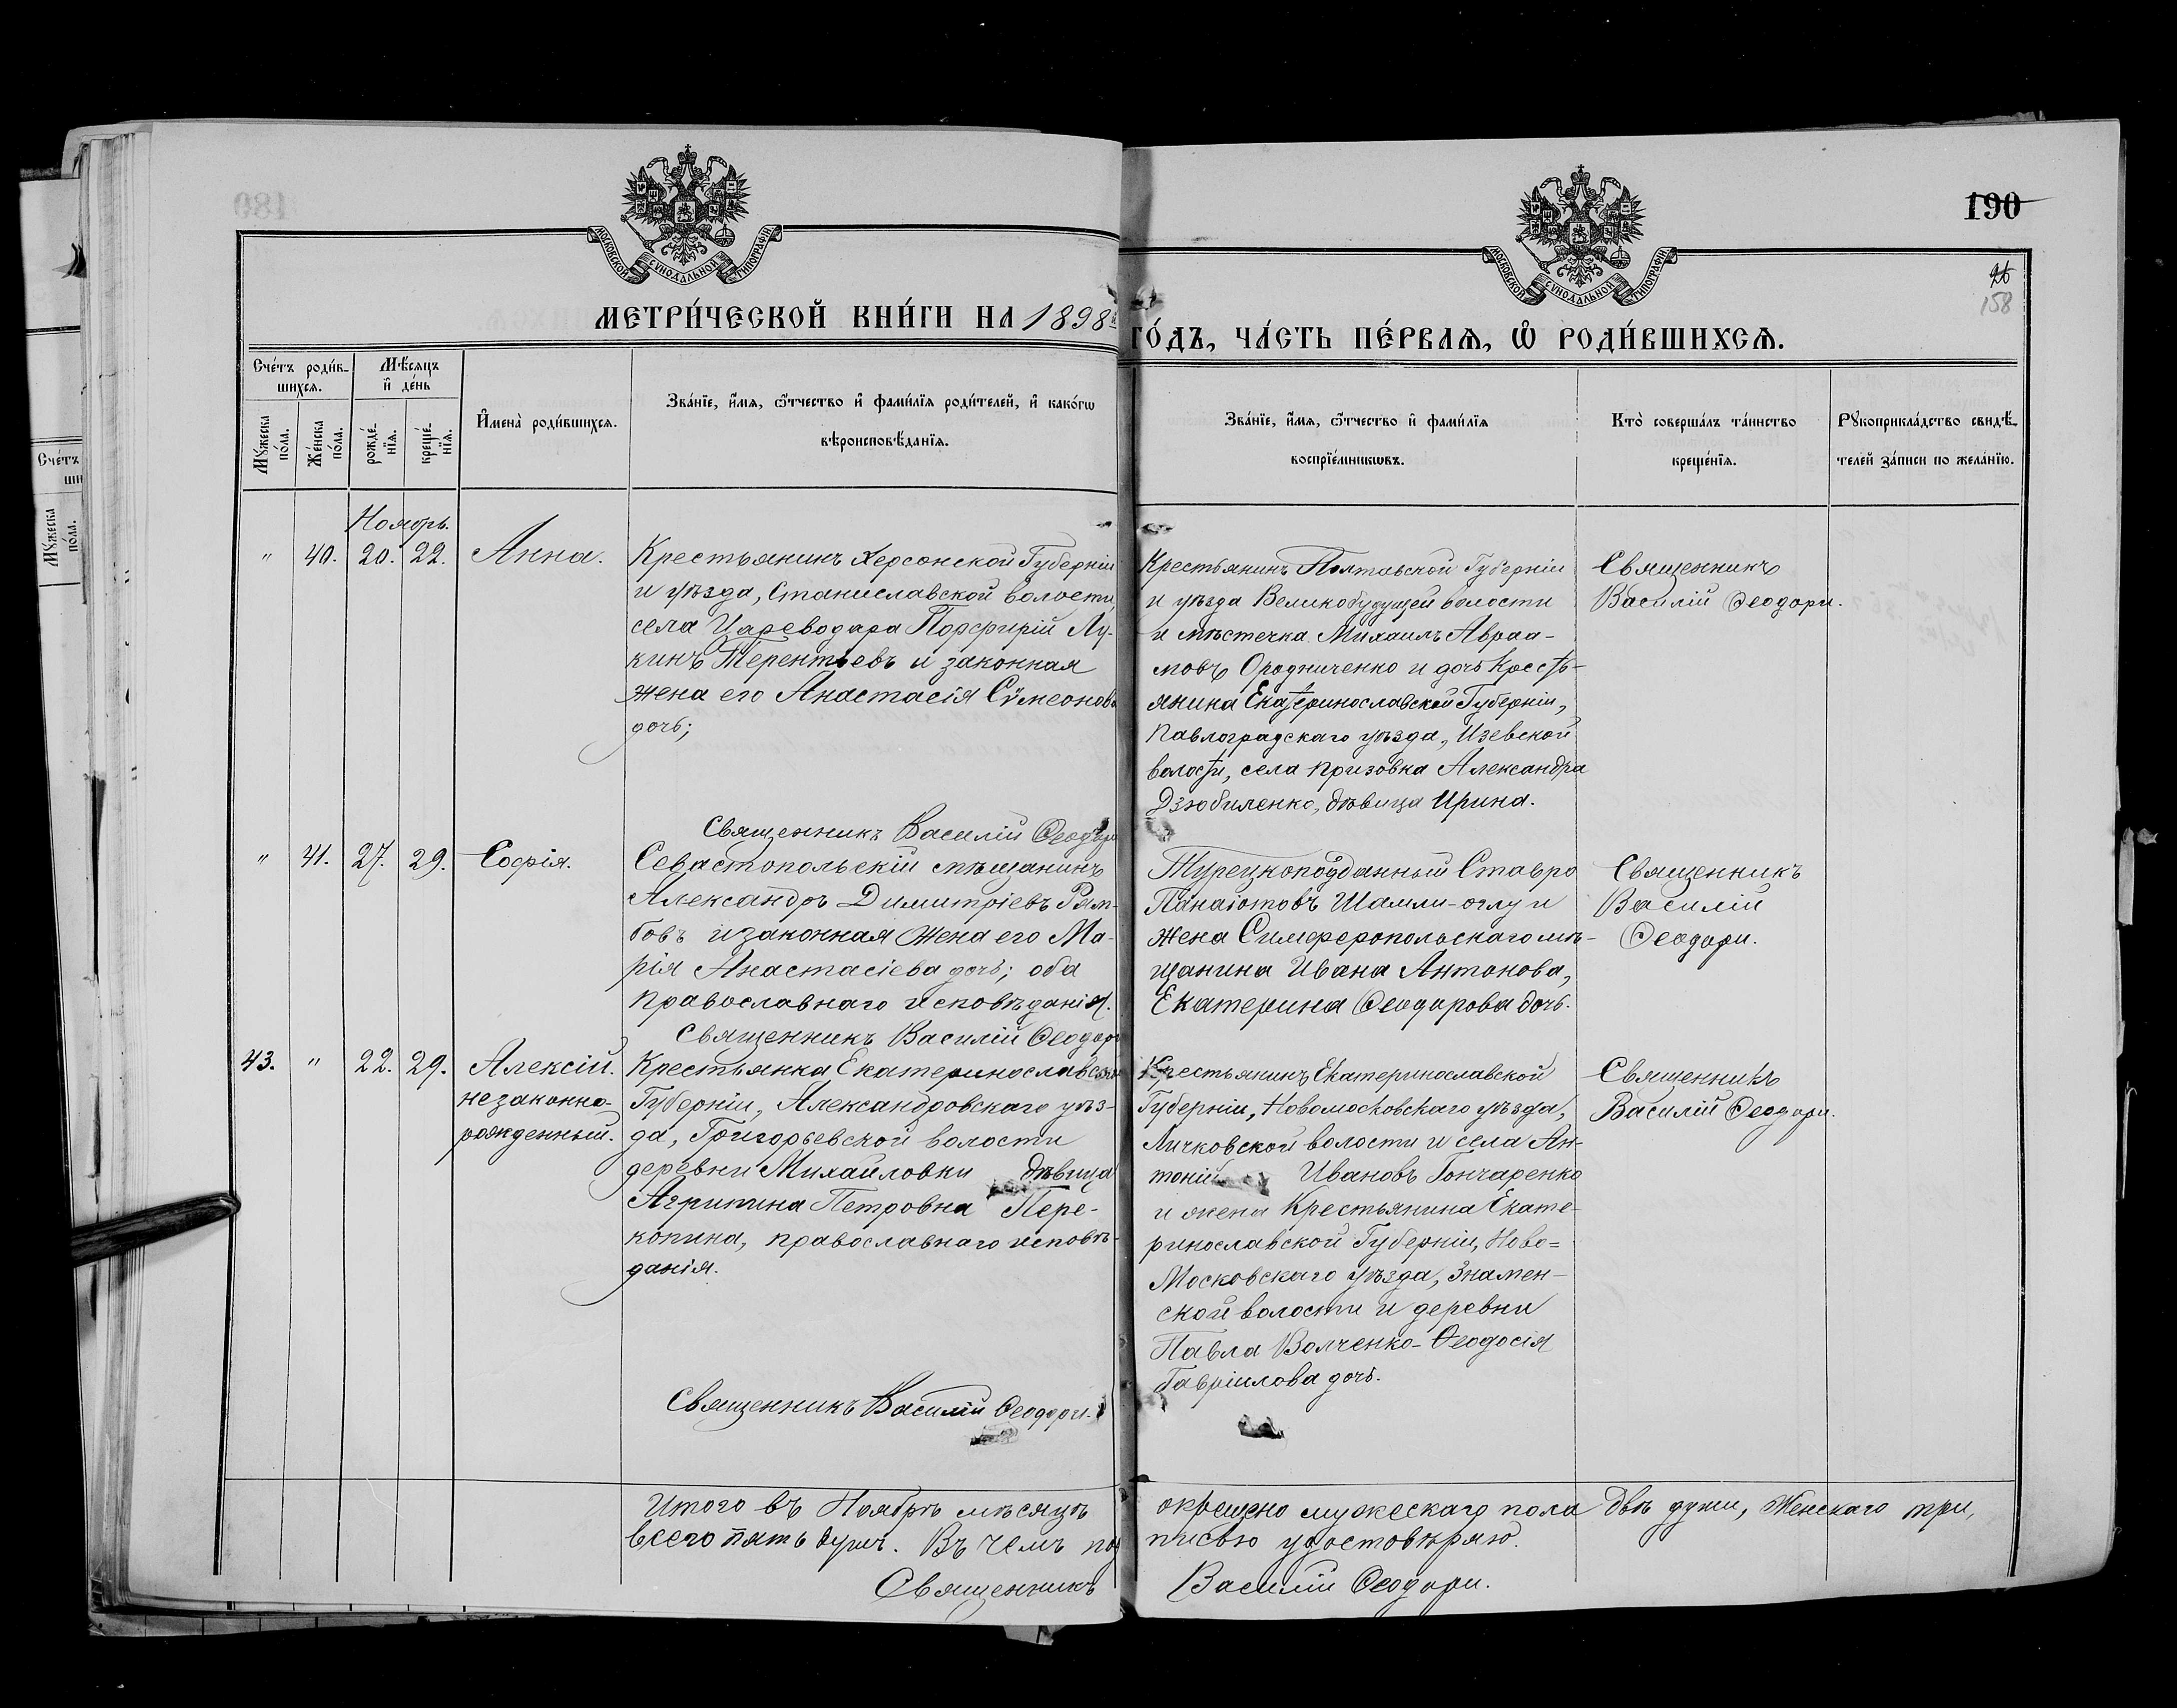 190
26
158
МОСКОВСКОЙ СУНОДАЛЬНОЙ ТИПОГРАФІИ
МОСКОВСКОЙ СУНОДАЛЬНОЙ ТИПОГРАФІИ
МЕТРИ́ЧЕСКОЙ КНИ́ГИ НА 1898й ГО́ДЪ, ЧА́СТЬ ПЕ́РВАѦ, Ѡ РОДИ́ВШИХСѦ.
Сче́тъ роди́в-
шихсѧ.
Мѣ́сѧцъ
и҆ де́нь
Мꙋ́жеска
по́ла.
Же́нска
по́ла.
рожде́-
нїѧ.
креще́-
нїѧ.
И҆мена̀ роди́вшихсѧ.
Зва́нїе, и҆́мѧ, ѻ҆́тчество и҆ фами́лїѧ роди́телей, и҆ како́гѡ
вѣроисповѣ́данїѧ.
Зва́нїе, и҆́мѧ, ѻ҆́тчество и҆ фами́лїѧ
воспрїе́мникѡвъ.
Кто̀ соверша́лъ та́инство
креще́нїѧ.
Рꙋкоприкла́дство свидѣ́-
телей за́писи по жела́нїю.
Ноябрь.
" 40. 20. 22. Анна.
Крестьянинъ Херсонской Губерніи
и уѣзда, Станиславской волости,
села Цареводара Порфирій Лу-
кинъ Терентьевъ и законная
жена его Анастасія Сѵмеонова
дочь;
Священникъ Василій Ѳеодори
Крестьянинъ Полтавской Губерніи
и уѣзда Великобудущей волости
и мѣстечка Михаилъ Авраа-
мовъ Ородниченко и дочь Кресть-
янина Екатеринославской Губерніи,
Павлоградскаго уѣзда, Изевской
волости, села Призовка Александра
Дзюбиленко, дѣвица Ирина.
Священникъ
Василій Ѳеодори.
" 41. 27. 29. Софія.
Севастопольскій мѣщанинъ
Александръ Димитріевъ Рям-
бовъ и законная жена его Ма-
рія Анастасіева дочь; оба
православнаго исповѣданія.
Священникъ Василій Ѳеодори
Турецкоподданный Ставро
Панаіотовъ Шамли-оглу и
жена Симферопольскаго мѣ-
щанина Ивана Антонова,
Екатерина Ѳеодорова дочь.
Священникъ
Василій
Ѳеодори.
43. " 22. 29. Алексій.
незаконно-
рожденный.
Крестьянка Екатеринославской
Губерніи, Александровскаго уѣз-
да, Григорьевской волости
деревни Михайловки дѣвица
Агрипина Петровна Пере-
копина, православнаго исповѣ-
данія.
Священникъ Василій Ѳеодори.
Крестьянинъ Екатеринославской
Губерніи, Новомосковскаго уѣзда,
Личковской волости и села Ан-
тоній Ивановъ Гончаренко
и жена Крестьянина Екате-
ринославской Губерніи, Ново=
Московскаго уѣзда, Знамен-
ской волости и деревни
Павла Волченко- Ѳеодосія
Гавріилова дочь.
Священникъ
Василій Ѳеодори.
Итого въ Ноябрѣ мѣсяцѣ окрещено мужескаго пола двѣ души, Женскаго три,
всего пять душъ. Въ чемъ подписью удостовѣряю.
Священникъ Василій Ѳеодори.
Сче́тъ
Мꙋ́жеска
по́ла.